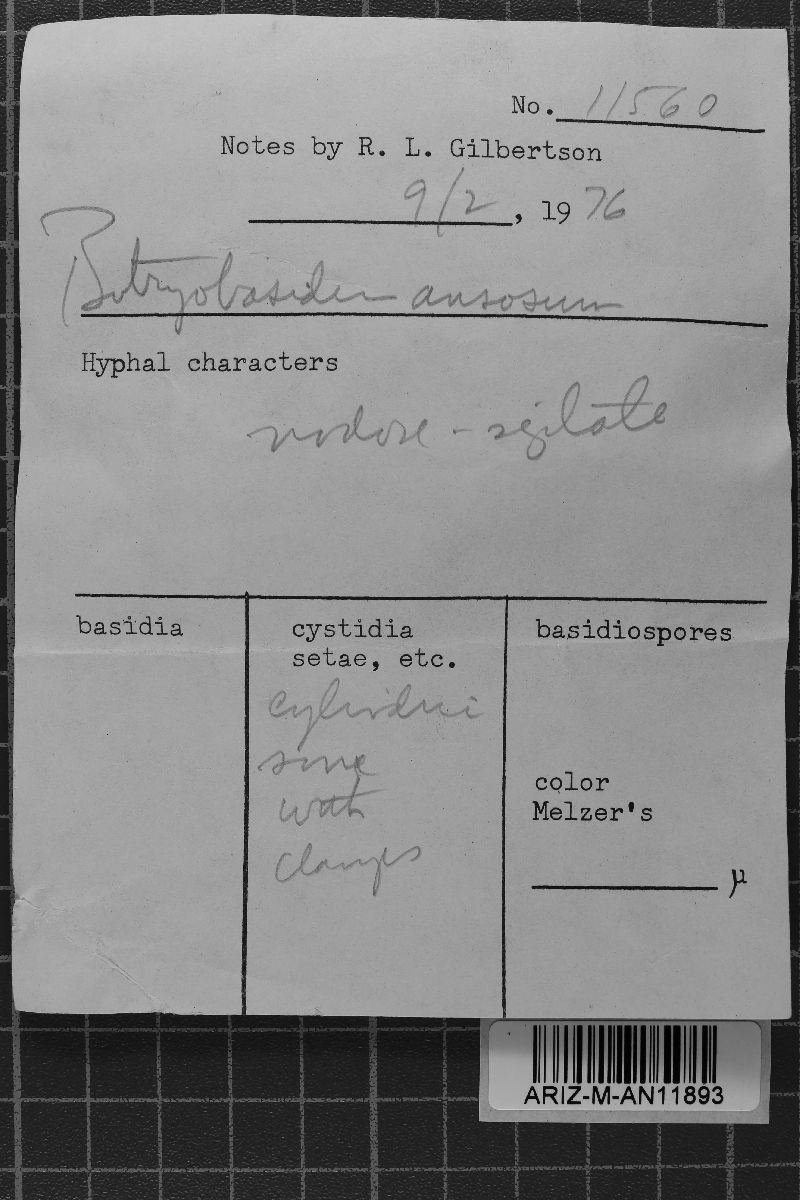 No. 11560
Notes by R. L. Gilbertson
9/2, 1976
Botryobasidium ansosum
Hyphal characters
nodose-septate
basidia
cystidia
setae, etc.
cylindric
some
with
clamps
basidiospores
color
Melzer's
μ
ARIZ-M-AN11893